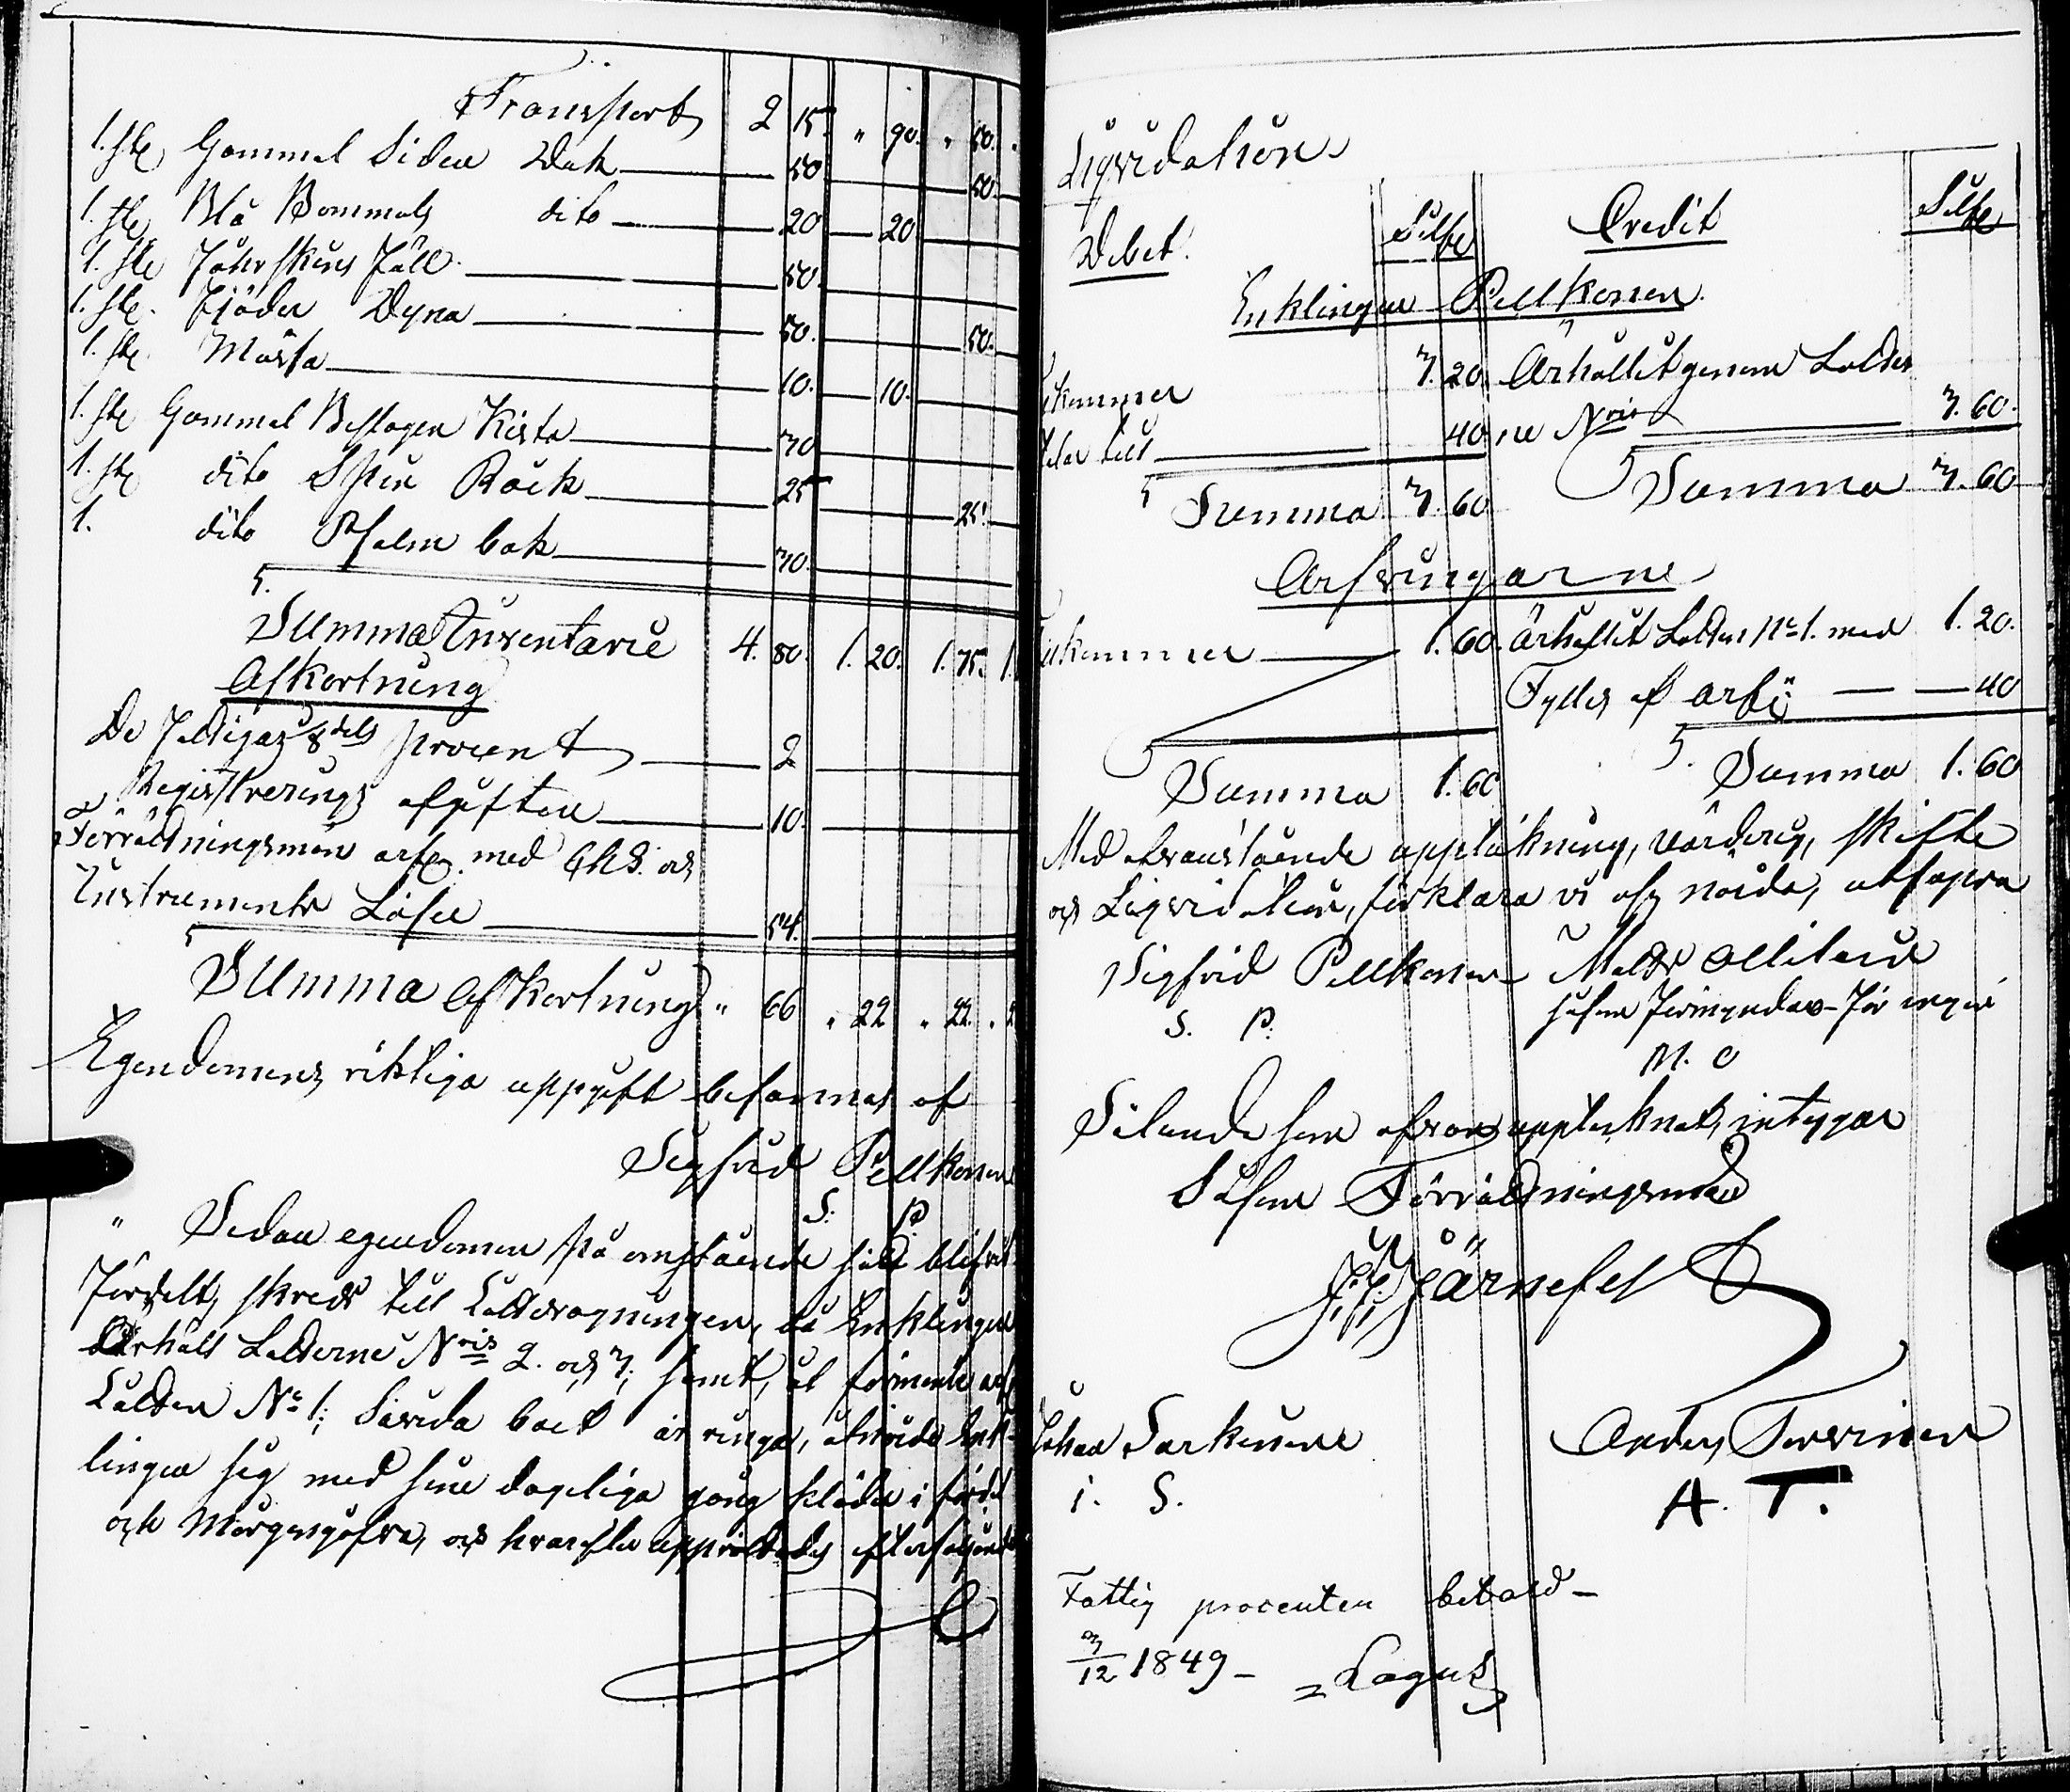 Transport 2 15. " 90. " 50.
1. st. Gammal Siden Duk 50 50.
1. st. Blå Bommuls dito 20 20
1. st. Fårskins Fäll 50.
1. st. Fjäder Dyna 50. 50.
1. st. Mössa 10. 10.
1. st. Gammal Beslagen Kista 70
1. st. dito Spin Rock 25 25.
1. dito Psalm bok 70.
Summa Inventarie 4. 80. 1. 20. 1. 75. 1.
Afkortning
De Fattigas 8dels procent 2
Registrerings afgiften 10.
Förrättningsmän arf. med och
Instruments Lösen 54.
Summa Afkortning " 66 " 22 " 22. "
Egendomens riktiga uppgift besannas af
Sigfrid Pellkonen
S. P.
" Sedan egendomen på omstående sätt blifvit
fördelt, skreds till Lottdragningen, då Enklingen
Erhållt Lotterne Nris 2. och 3; samt,
Lotten No 1; Såvida boet är ringa, åtnöjde Enk-
lingen sig med sine dageliga gång kläder i fördel
och Morgongåfva, och hvarefter upprättades efterföljande
Liqvidation
Debet. Silfver Credit Silfver
Enklingen Pellkonen
Tilkommer 7. 20. Erhållit genom Lotter
till 40 ne Nris 7. 60.
Summa 7. 60 Summa 7. 60
Arfvingarne
Tilkommer 1. 60. Erhållit Lotten No 1. med 1. 20.
Fylles af 40
Summa 1. 60 Summa 1. 60
Med ofvanstående uppteckning, värdering, skifte
och Liqvidation, förklara vi oss nöjda, utsagera
Sigfrid Pellkonen Matts
S. P. såsom förmyndare för
M. O
Sålunda hava ofvan upptecknat, intygar
Såsom Förrättningsman
Järnefelt
Johan Sarkinen Anders Torvinen
i. S. A. T.
Fattig procenten betald –
3/12 1849 – Lagus